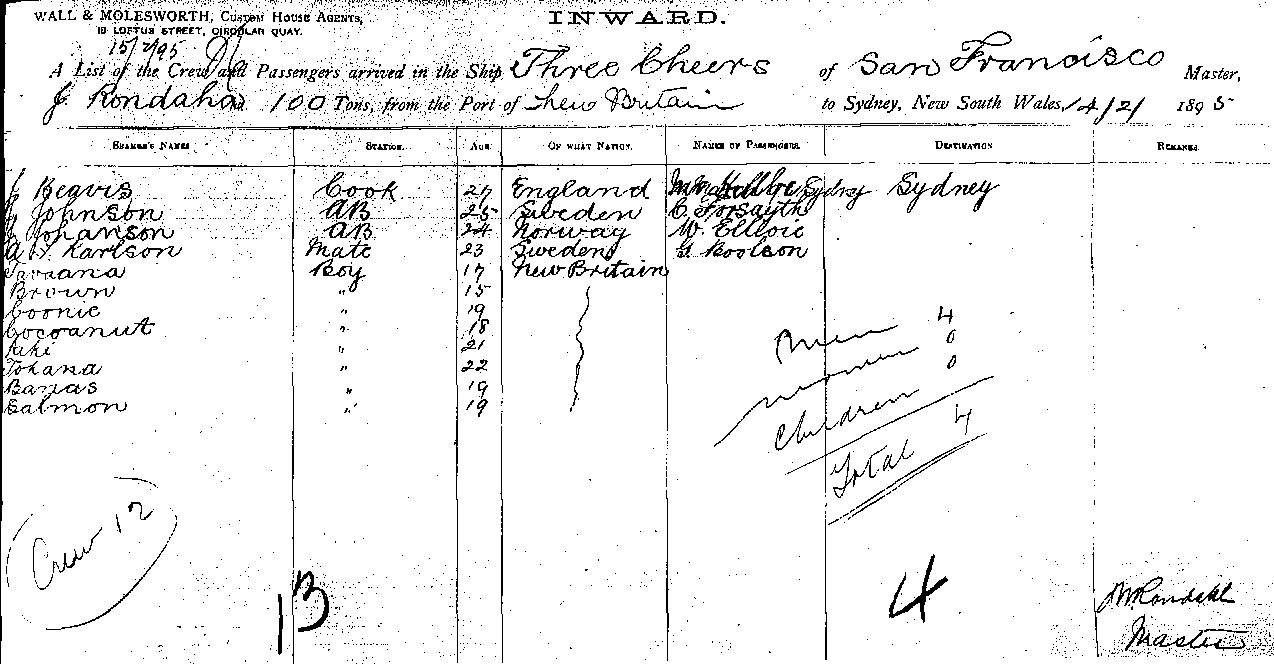 WALL & MOLESWORTH, CUSTOM HOUSE AGENTS,
19 LOFTUS STREET, CIRCULAR QUAY.
INWARD.
15/2/95
A List of the Crew and Passengers arrived in the Ship Three Cheers of San Francisco Master,
J. Rondahl 100 Tons, from the Port of New Britain to Sydney, New South Wales, 14/2/ 1895
SEAMEN'S NAMES STATION. AGE OF WHAT NATION. NAMES OF PASSENGERS. DESTINATION REMARKS
J Beavis Cook England Sydney Sydney
J Johnson AB 25 Sweden C. Forsayth
J Johanson AB 24 Norway W.
A. Karlson Mate 23 Sweden G Boolson
Boy 17 New Britain
Brown " 15
Coonie " 19
Cocoanut " 18
" 21
Tohana " 22
" 19
Salmon " 19
Men 4
Women 0
Children 0
Total 4
Crew 12
13
4
Rondahl
Master